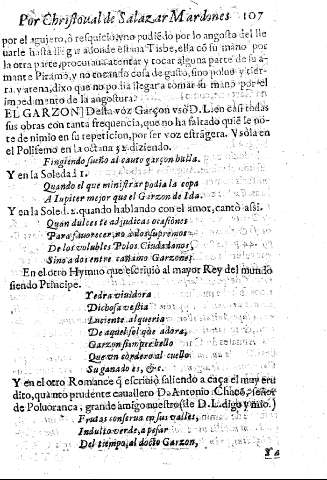 Por Christoual de Salazar Mardones 107
por el agujero, ò resquicio, y no pudiẽdo por lo angosto del lle
uarle hasta llegar adonde estaua Tisbe, ella cõ su mano por
la otra parte, procuraua tentar y tocar alguna parte de su a-
mante Piramo, y no tocando cosa de gusto, sino polno y tier-
ra, y arena, dixo que no podia llegar a tomar su mano por el
impedimento de la angostura.
EL GARZON] Desta voz Garçon vsò D. L. en casi todas
sus obras con tanta frequencia, que no ha faltado quiẽ le no-
te de nimio en su repeticion, por ser voz estrãgera. Vsola en
el Polifemo en la octaua 32. diziendo.
Fingiendo sueño al cauto garçon halla.
Y en la Soledad 1.
Quando el que ministrar podia la copa
A Iupiter mejor que el Garzon de Ida.
Y en la Soled. 2. quando hablando con el amor, cantò assi.
Quan dulces te adjudicas ocasiones
Para fauorecer, no a dos supremos
De los volubles Polos Ciudadanos,
Sino a dos entre cañamo Garzones.
En el otro Hymno que escriuiò al mayor Rey del mundo
siendo Principe.
Yedra viuidora
Dichosa vestia
Luciente alqueria
De aquel sol que adora,
Garzon siempre bello
Que vn cordero al cuello
Su ganado es, &c.
Y en el otro Romance q̃ escriuiò saliendo a caça el muy eru
dito, quanto prudente cauallero D. Antonio Chacõ, señor
de Poluoranca, grande amigo nuestro (de D. L. digo y mio.)
Frutas conserua en sus valles,
Indulto verde, a pesar
Del tiempo, al docto Garzon,